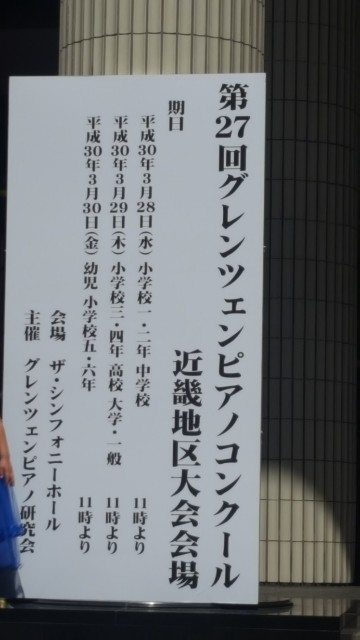 第27回グレンツェンピアノコンクール
近畿地区大会会場
期日
平成30年3月28日(水) 小学校一・二年 中学校 11時より
平成30年3月29日(木) 小学校三・四年 高校 大学・一般 11時より
平成30年3月30日(金) 幼児 小学校五・六年 11時より
会場 ザ・シンフォニーホール
主催 グレンツェンピアノ研究会